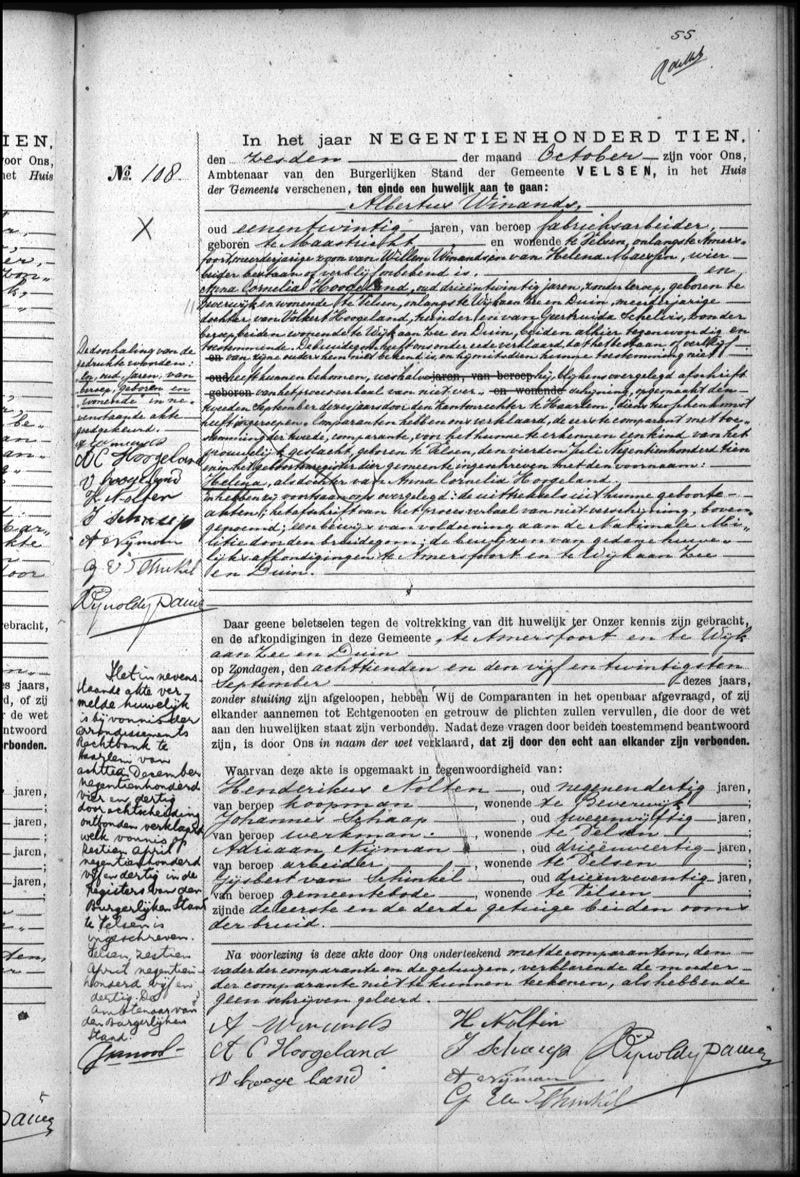 55
IEN,
voor Ons,
het Huis
No. 108.
X
In het jaar NEGENTIENHONDERD TIEN,
den zesden der maand October zijn voor Ons,
Ambtenaar van den Burgerlijken Stand der Gemeente VELSEN, in het Huis
der Gemeente verschenen, ten einde een huwelijk aan te gaan:
Albertus Winands,
oud eenentwintig jaren, van beroep fabrieksarbeider,
geboren te Maastricht en wonende te Velsen, onlangs te Amers-
foort, meerderjarige zoon van Willem Winands en van Helena Maessen, wier
beider bestaan of verblijf onbekend is. en
Anna Cornelia Hoogeland, oud drieëntwintig jaren, zonder beroep, geboren te
Beverwijk en wonende te Velsen, onlangs te Wijk aan Zee en Duin, meerderjarige
dochter van Volkert Hoogeland, en van Geertruida Schelvis, zonder
beroep, beiden wonende te Wijk aan Zee en Duin, beiden alhier tegenwoordig en
toestemmende. De bruidegom heeft ons onder eede verklaard, dat het bestaan of verblijf
en van zijne ouders hem niet bekend is en hij mitsdien hunne toestemming niet
oud heeft kunnen bekomen, weshalve jaren, van beroep hij, blijkens overgelegd afschrift
geboren van het proces verbaal van niet ver- en wonende schijning, opgemaakt den
tweeden September dezes jaars door den kantonrechter te Haarlem, diens tusschenkomst
heeft ingeroepen. Comparanten hebben ons verklaard, de eerste comparant met toe-
stemming der tweede comparante, voor het hunne te erkennen een kind van het
vrouwelijk geslacht, geboren te Velsen, den vierden Juli Negentienhonderd tien
en in het geboorteregister dier gemeente ingeschreven met den voornaam:
Helena, als dochter van Anna Cornelia Hoogeland.
En hebben zij voorts aan ons overgelegd: de uittreksels uit hunne geboorte-
akten; het afschrift van het proces verbaal van niet verschijning, boven-
genoemd; een bewijs van voldoening aan de Nationale Mi-
litie door den bruidegom; de bewijzen van gedane huwe-
lijksafkondigingen te Amersfoort en te Wijk aan Zee
en Duin.
De doorhaling van de
gedrukte woorden:
en, oud, jaren, van
beroep, geboren en
wonende in ne-
venstaande akte
goedgekeurd.
A Winands
A C Hoogeland
V hoogeland
H Nolten
J Schaap
A Nijman
G v Schinkel
Daar geene beletselen tegen de voltrekking van dit huwelijk ter Onzer kennis zijn gebracht,
en de afkondigingen in deze Gemeente, te Amersfoort en te Wijk
aan Zee en Duin
op Zondagen, den achttienden en den vijf en twintigsten
September dezes jaars,
zonder stuiting zijn afgeloopen, hebben Wij de Comparanten in het openbaar afgevraagd, of zij
elkander aannemen tot Echtgenooten en getrouw de plichten zullen vervullen, die door de wet
aan den huwelijken staat zijn verbonden. Nadat deze vragen door beiden toestemmend beantwoord
zijn, is door Ons in naam der wet verklaard, dat zij door den echt aan elkander zijn verbonden.
Waarvan deze akte is opgemaakt in tegenwoordigheid van:
Henderikus Nolten, oud negenendertig jaren,
van beroep koopman, wonende te Beverwijk;
Johannes Schaap, oud tweeenvijftig jaren,
van beroep werkman, wonende te Velsen;
Adriaan Nijman, oud drieënveertig jaren,
van beroep arbeider, wonende te Velsen
Gijsbert van Schinkel, oud drieënzeventig jaren,
van beroep gemeentebode, wonende te Velsen;
zijnde de eerste en de derde getuige beiden ooms
der bruid.
Na voorlezing is deze akte door Ons onderteekend met de comparanten, den
vader der comparante en de getuigen, verklarende de moeder
der comparante niet te kunnen teekenen, als hebbende
geen schrijven geleerd.
A Winands
A C Hoogeland
V hoogeland
H Nolten
J Schaap
A Nijman
G v Schinkel
Het in nevens-
staande akte ver-
melde huwelijk
is bij vonnis der
Arrondissements
Rechtbank te
Haarlem van
achttien December
negentienhonderd
vier en dertig
door echtscheiding
ontbonden verklaard
welk vonnis
zestien April
negentienhonderd
vijf en dertig in de
registers van den
Burgerlijken Stand
te Velsen is
ingeschreven.
Velsen, zestien
April negentien-
honderd vijf en
dertig. De
Ambtenaar van
den Burgerlijken
Stand.
gebracht,
s jaars,
d, of zij
de wet
antwoord
erbonden.
jaren,
jaren,
jaren,
jaren,